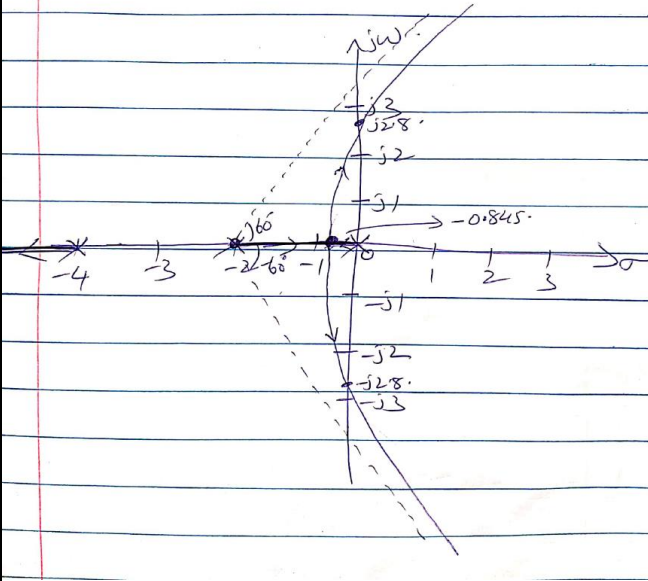 jω
j3
j28.
j2
j1
-0.845.
60°
-60°
-4 -3 -2 -1 0 1 2 3 σ
-j1
-j2
-j28.
-j3